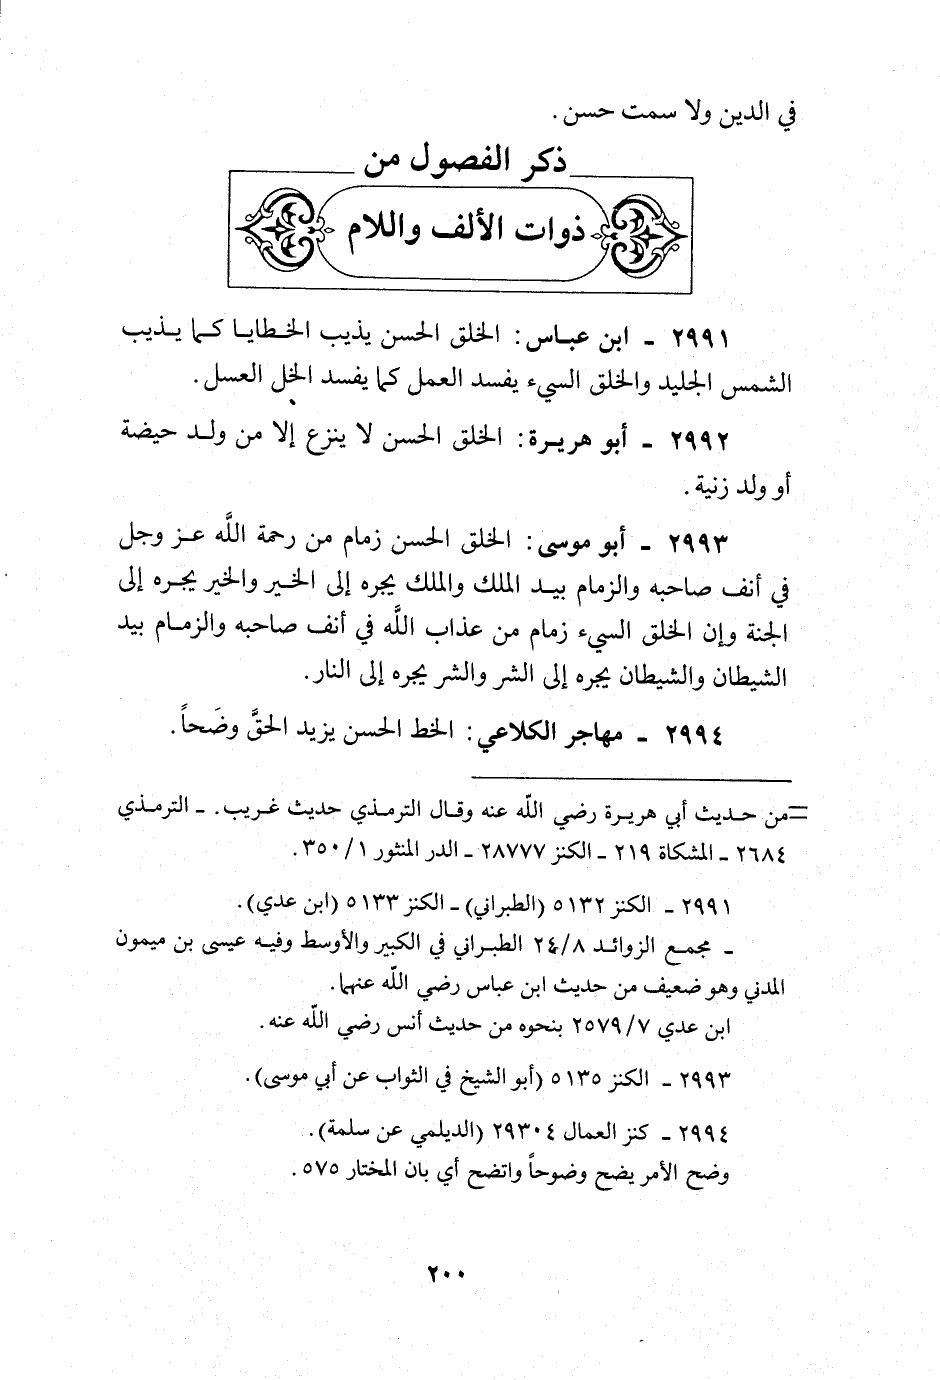 في الدين ولا سمت حسن .
ذكر الفصول من
ذوات الألف واللام
٢٩٩١ ـ ابن عباس : الخلق الحسن يذيب الخطايا كما يذيب
الشمس الجليد والخلق السيء يفسد العمل كما يفسد الخل العسل .
٢٩٩٢ ـ أبو هريرة : الخلق الحسن لا ينزع إلا من ولد حيضة
أو ولد زنية .
٢٩٩٣ ـ أبو موسى : الخلق الحسن زمام من رحمة اللَّه عز وجل
في أنف صاحبه والزمام بيد الملك والملك يجره إلى الخير والخير يجره إلى
الجنة وإن الخلق السيء زمام من عذاب اللَّه في أنف صاحبه والزمام بيد
الشيطان والشيطان يجره إلى الشر والشر يجره إلى النار .
٢٩٩٤ ـ مهاجر الكلاعي : الخط الحسن يزيد الحقَّ وضَحاً .
=من حديث أبي هريرة رضي اللّه عنه وقال الترمذي حديث غريب . ـ الترمذي
٢٦٨٤ ـ المشكاة ٢١٩ ـ الكنز ٢٨٧٧٧ ـ الدر المنثور ٣٥٠/١ .
٢٩٩١ ـ الكنز ٥١٣٢ (الطبراني) ـ الكنز ٥١٣٣ (ابن عدي) .
ـ مجمع الزوائد ٢٤/٨ الطبراني في الكبير والأوسط وفيه عيسى بن ميمون
المدني وهو ضعيف من حديث ابن عباس رضي اللّه عنهما .
ابن عدي ٢٥٧٩/٧ بنحوه من حديث أنس رضي اللّه عنه .
٢٩٩٣ ـ الكنز ٥١٣٥ (أبو الشيخ في الثواب عن أبي موسى) .
٢٩٩٤ ـ كنز العمال ٢٩٣٠٤ (الديلمي عن سلمة) .
وضح الأمر يضح وضوحاً واتضح أي بان المختار ٥٧٥ .
٢٠٠